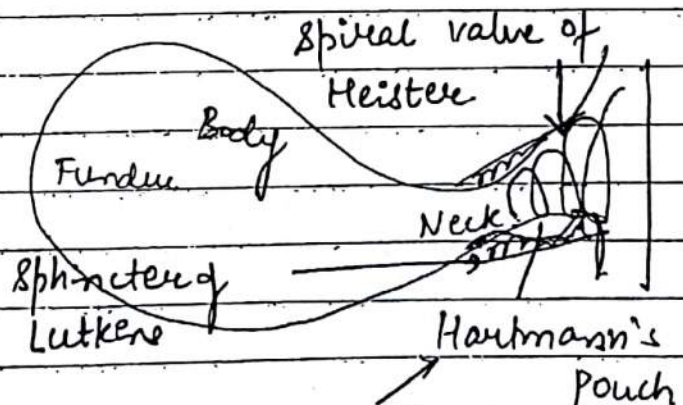 Spiral valve of
Heister
Body
Fundus
Neck
Sphincter of
Lutkens
Hartmann's
Pouch